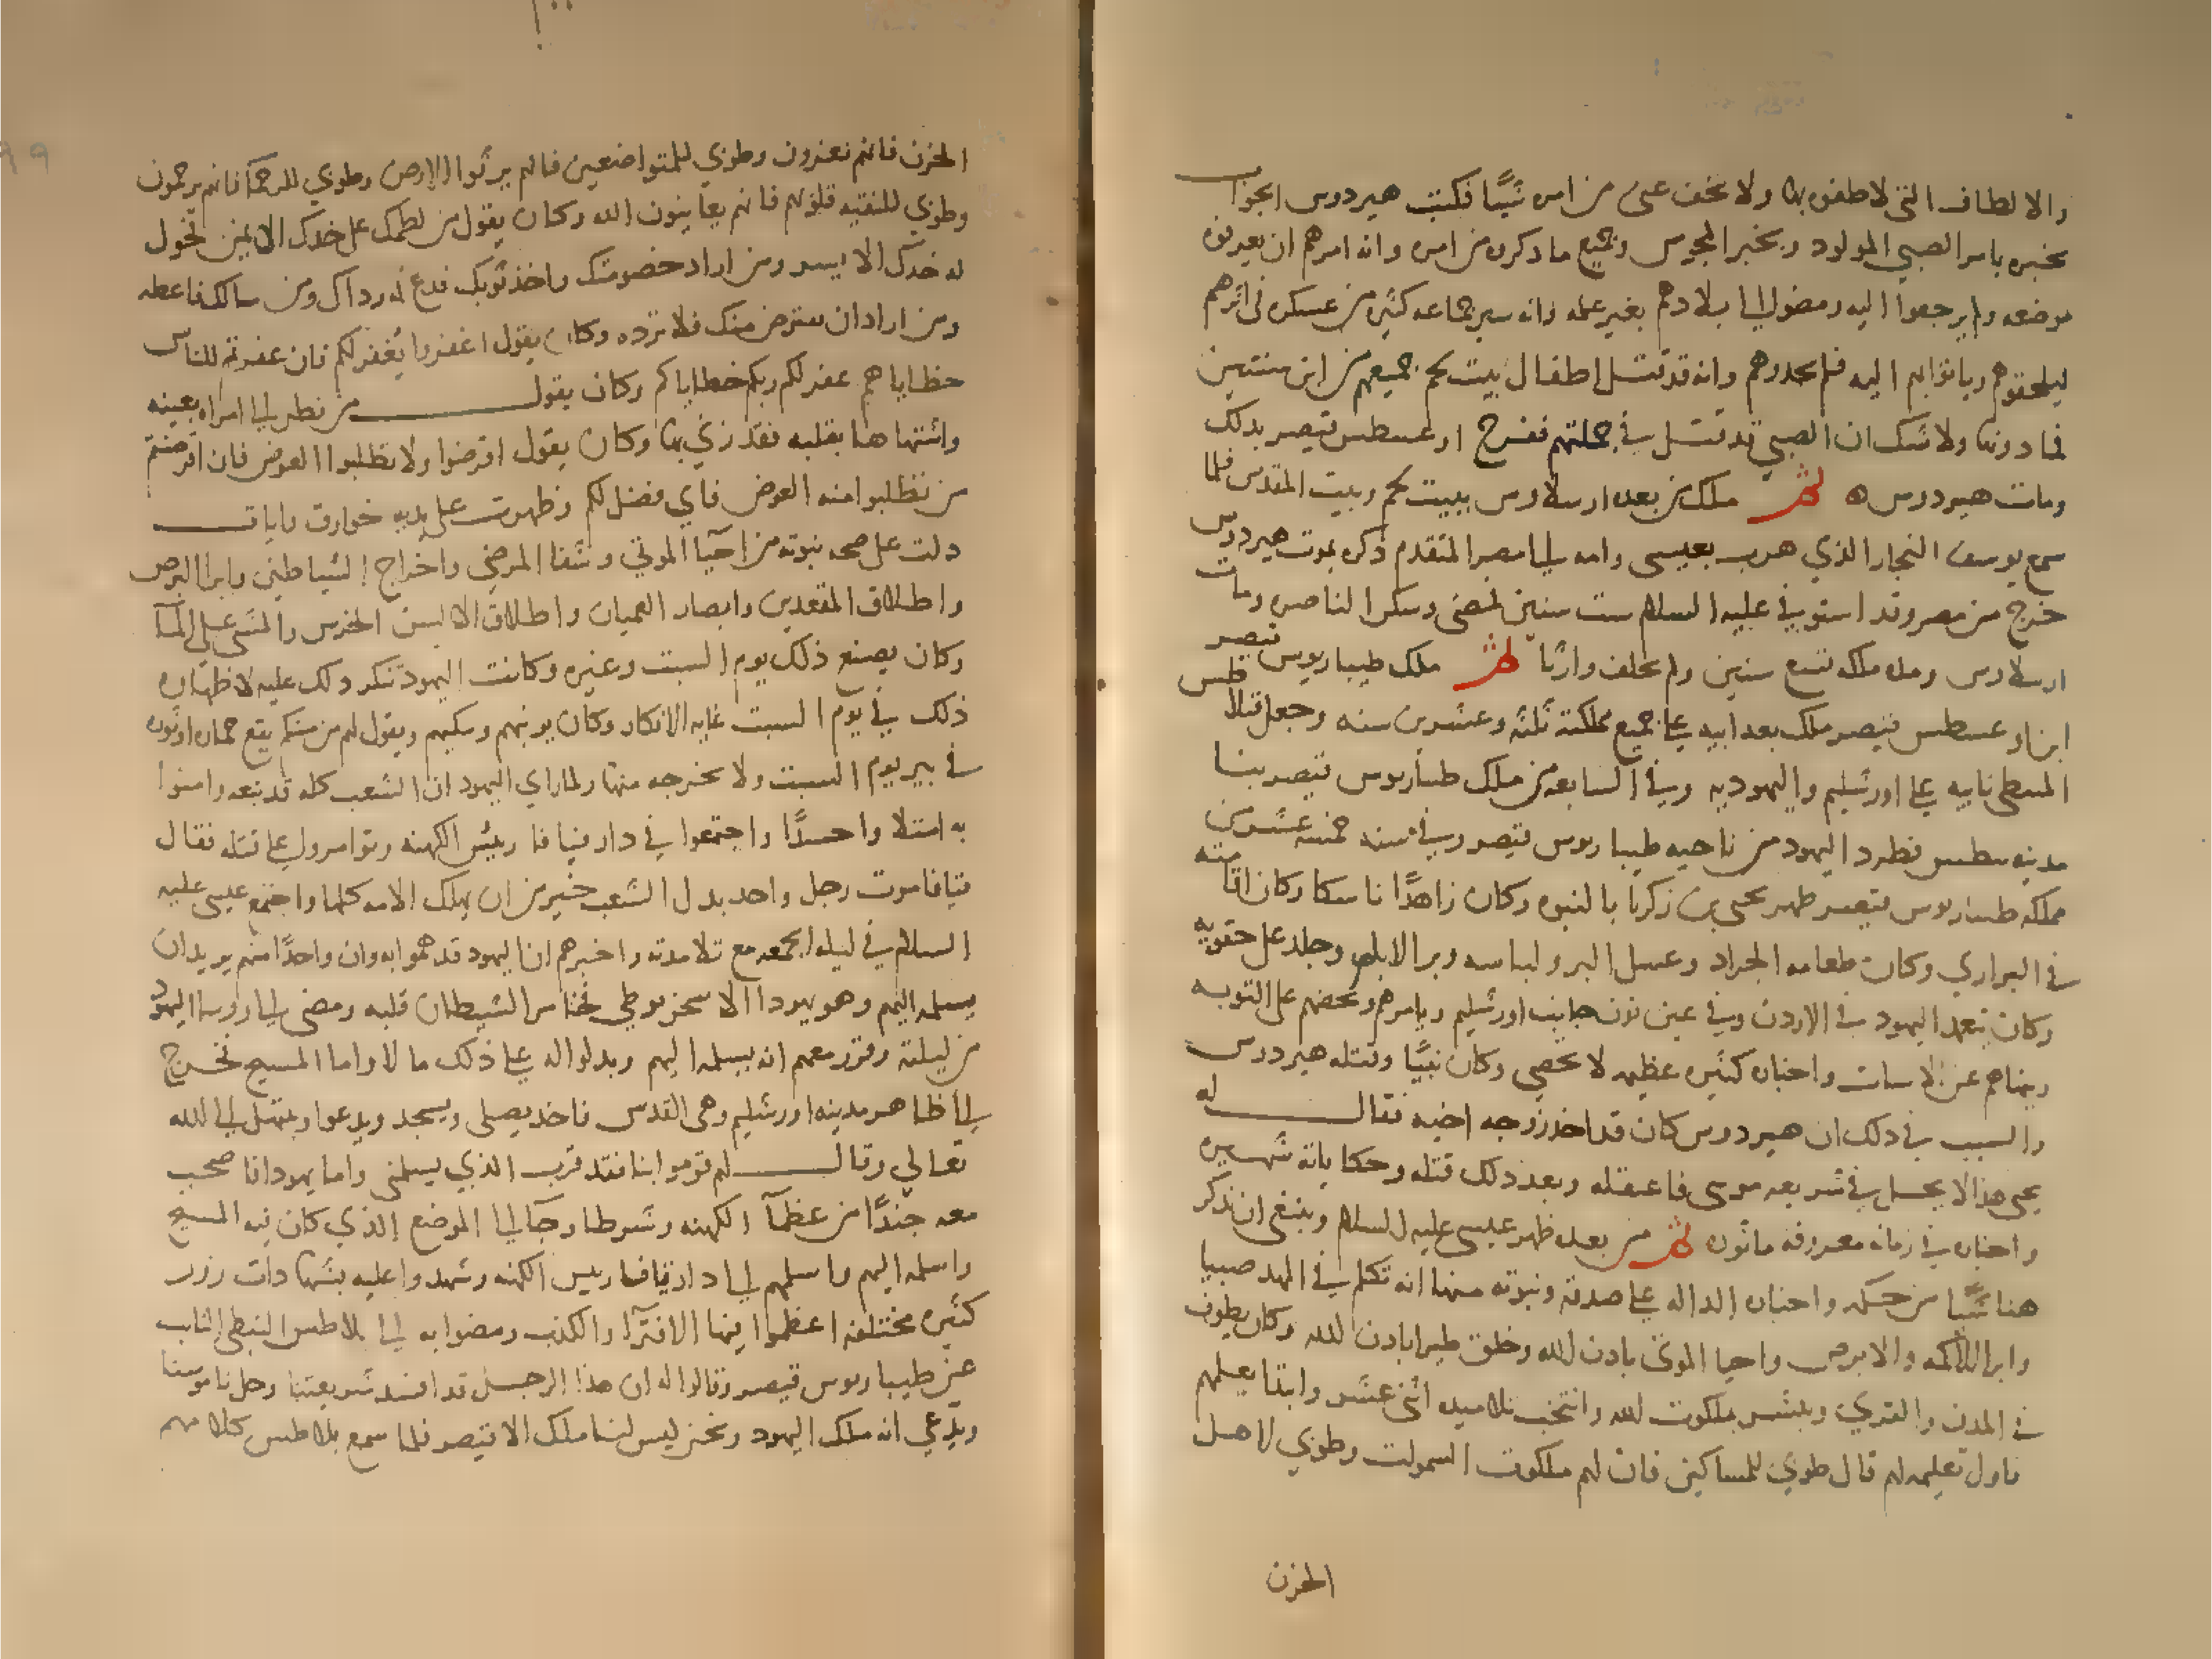 والالطاف التي لاطفوه بها ولا تخف عنى من امره شيًا فكتب هيردوس الجواب
يخبره بامر الصبي المولود وبخبر المجوس وجميع ما ذكروه من امره وانه امرهم ان يعرفوه
موضعه ولم يرجعوا اليه ومضوا الى بلادهم بغير علمه وانه سير جماعه كثيره من عسكره في اثرهم
ليلحقوهم وياتوا بهم اليه فلم يجدوهم وانه قد قتل اطفال بيت لحم جميعهم من ابن سنتين
فما دونها ولا شك ان الصبي قد قتل في جملتهم ففرح اوغسطس قيصر بذلك
ومات هيردوس ه ثم ملك من بعده ارسلاوس ببيت لحم وبيت المقدس فلما
سمع يوسف النجار الذي هرب بعيسى وامه الى مصر المتقدم ذكره بموت هيردوس
خرج من مصر وقد استوفى عليه السلام ست سنين فمضى وسكن الناصره ومات
ارسلاوس ومده ملكه تسع سنين ولم يخلف وارثا ثم ملك طيباريوس قيصر
ابن اوغسطس قيصر ملك بعد ابيه على جميع مملكته ثلثه وعشرين سنه وجعل فيلاطس
النبطي نايبه على اورشليم واليهوديه وفي السابعه من ملك طيباريوس قيصر بنا
مدينه وطرد اليهود من ناحيه طيباريوس قيصر وفي سنه خمسه عشر من
مملكه طيباريوس قيصر ظهر يحيى بن زكريا بالنبوه وكان زاهدًا ناسكا وكان اقامته
في البراري وكان طعامه الجراد وعسل البر ولباسه وبر الابل وجلد على حقويه
وكان يعمد اليهود في الاردن وفي عين نون جانب اورشليم ويامرهم ويحضهم على التوبه
وينهاهم عن واخباره كثيره عظيمه لا تحصى وكان نبيًا وقتله هيردوس
والسبب في ذلك ان هيردوس كان قد اخذ زوجه اخيه فقال له
يحيى هذا لا يحل في شريعه موسى فاعتقله وبعد ذلك قتله وحكاياته شهيره
واخباره في زمانه معروفه ماثوره ثم من بعده ظهر عيسى عليه السلام وينبغي ان نذكر
هنا شيًا من حكمه واخباره الداله على صدقه ونبوته منها انه تكلم في المهد صبيا
وابرا الاكمه والابرص واحيا الموتى باذن الله وخلق طيرا باذن الله وكان يطوف
في المدن والقرى ويبشر بملكوت الله وانتخب تلاميذه اثنى عشر وابتدا يعلمهم
فاول تعليمه لهم قال طوبى للمساكين فان لهم ملكوت السموات وطوبى لاهل
الحزن
الحزن فانهم يعزون وطوبي للمتواضعين فانهم يرثوا الارض وطوبي للرحما فانهم يرحمون
وطوبي للنقيه قلوبهم فانهم يعاينون الله وكان يقول من لطمك على خدك الايمن تحول
له خدك الايسر ومن اراد خصومتك واخذ ثوبك فدع له رداك ومن سالك فاعطه
ومن اراد ان يقترض منك فلا ترده وكان يقول اغفروا يُغفر لكم فان غفرتم للناس
خطاياهم غفر لكم ربكم خطاياكم وكان يقول من نظر الى امراه بعينه
واشتهاها بقلبه فقد زني بها وكان يقول اقرضوا ولا تطلبوا العوض فان اقرضتم
من تطلبوا منه العوض فاي فضل لكم وظهرت على يديه خوارق وايات
دلت على صحه نبوته من احيا الموتي وشفا المرضى واخراج الشياطين وابرا البرص
واطلاق المقعدين وابصار العميان واطلاق الالسن الخرس والمشى على المآ
وكان يصنع ذلك يوم السبت وغيره وكانت اليهود تنكر ذلك عليه لاظهاره
ذلك في يوم السبت غايه الانكار وكان يوبخهم ويبكتهم ويقول لهم من منكم يقع حماره او ثوره
في بير يوم السبت ولا يخرجه منها ولما راي اليهود ان الشعب كله قد تبعه وامنوا
به امتلاوا حسدًا واجتمعوا في دار قيافا رييس الكهنه وتوامروا على قتله فقال
قيافا موت رجل واحد بدل الشعب خير من ان يهلك الامه كلها واجتمع عيسى عليه
السلام في ليله الجمعه مع تلامدته واخبرهم ان اليهود قد هموا به وان واحدًا منهم يريد ان
يسلمه اليهم وهو يهودا الاسخريوطي فخامر الشيطان قلبه ومضى الى روسا اليهود
من ليلته وقرر معهم انه يسلمه اليهم وبدلوا له على ذلك مالا واما المسيح فخرج
الى ظاهر مدينه اورشليم وهى القدس فاخد يصلى ويسجد ويدعوا ويبتهل الى الله
تعالي وقال لهم قوموا بنا فقد قرب الذي يسلمنى واما يهودا فاصحب
معه جندًا من عظمآ الكهنه وشرطا وجا الى الموضع الذي كان فيه المسيح
واسلمه اليهم واسلمهم الى دار قيافا رييس الكهنه وشهدوا عليه بشهادات زور
كثيره مختلفه اعظموا فيها الافترا والكذب ومضوا به الى بلاطس النبطى النايب
عن طيباريوس قيصر وقالوا له ان هذا الرجل قد افسد شريعتنا وحل ناموسنا
ويدعي انه ملك اليهود ونحن ليس لنا ملك الا قيصر فلما سمع بلاطس كلامهم